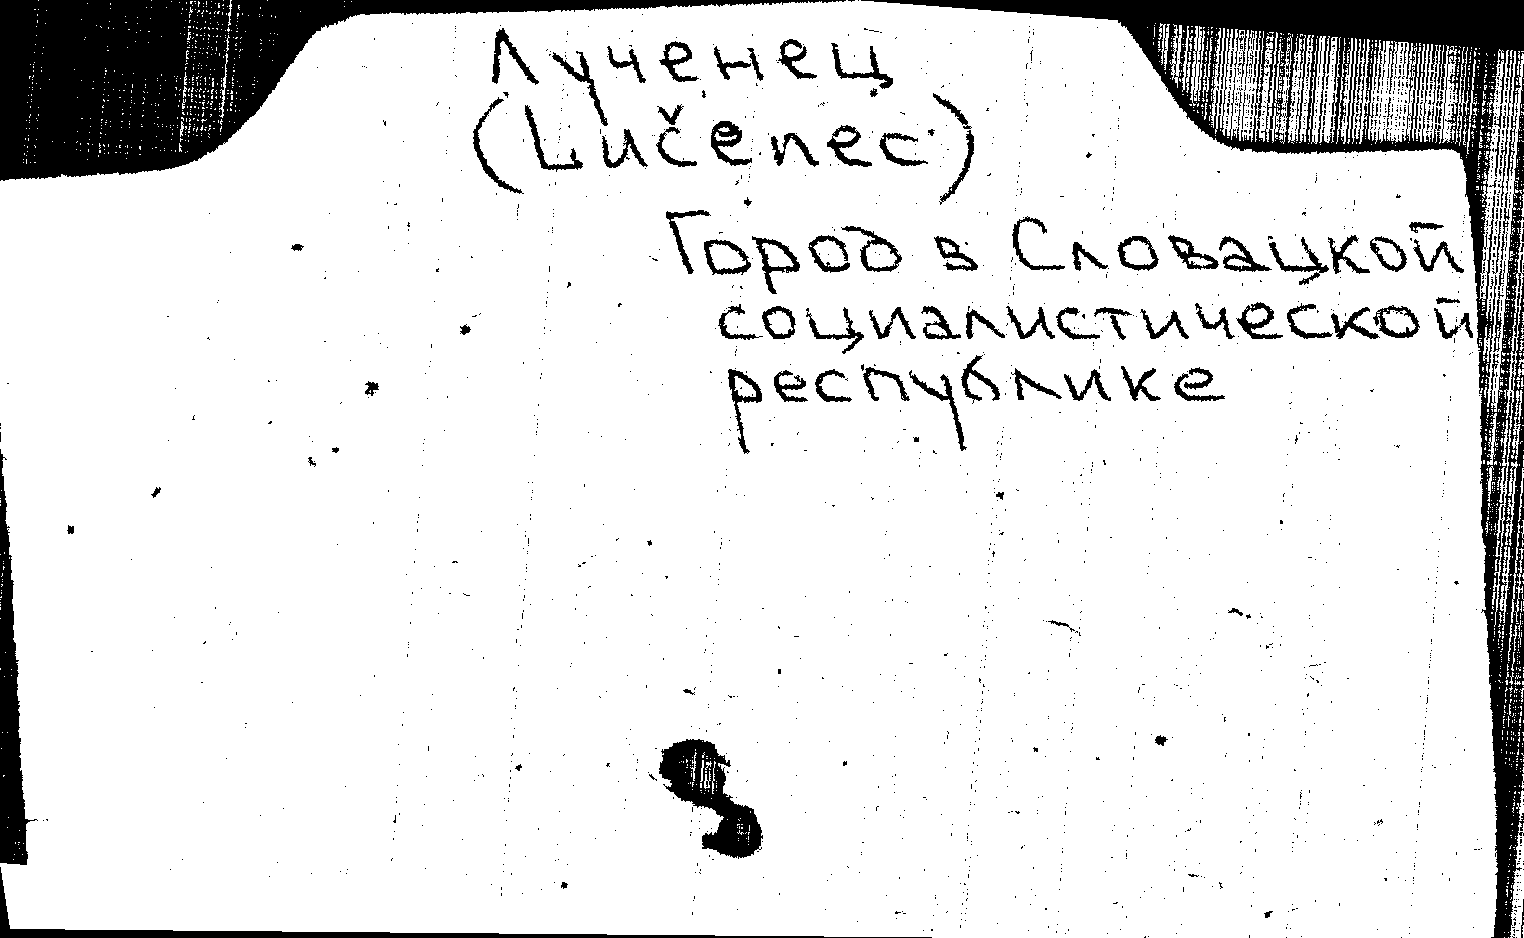 Лученец
(Lučenec)
Город в Словацкой
социалистической
республике